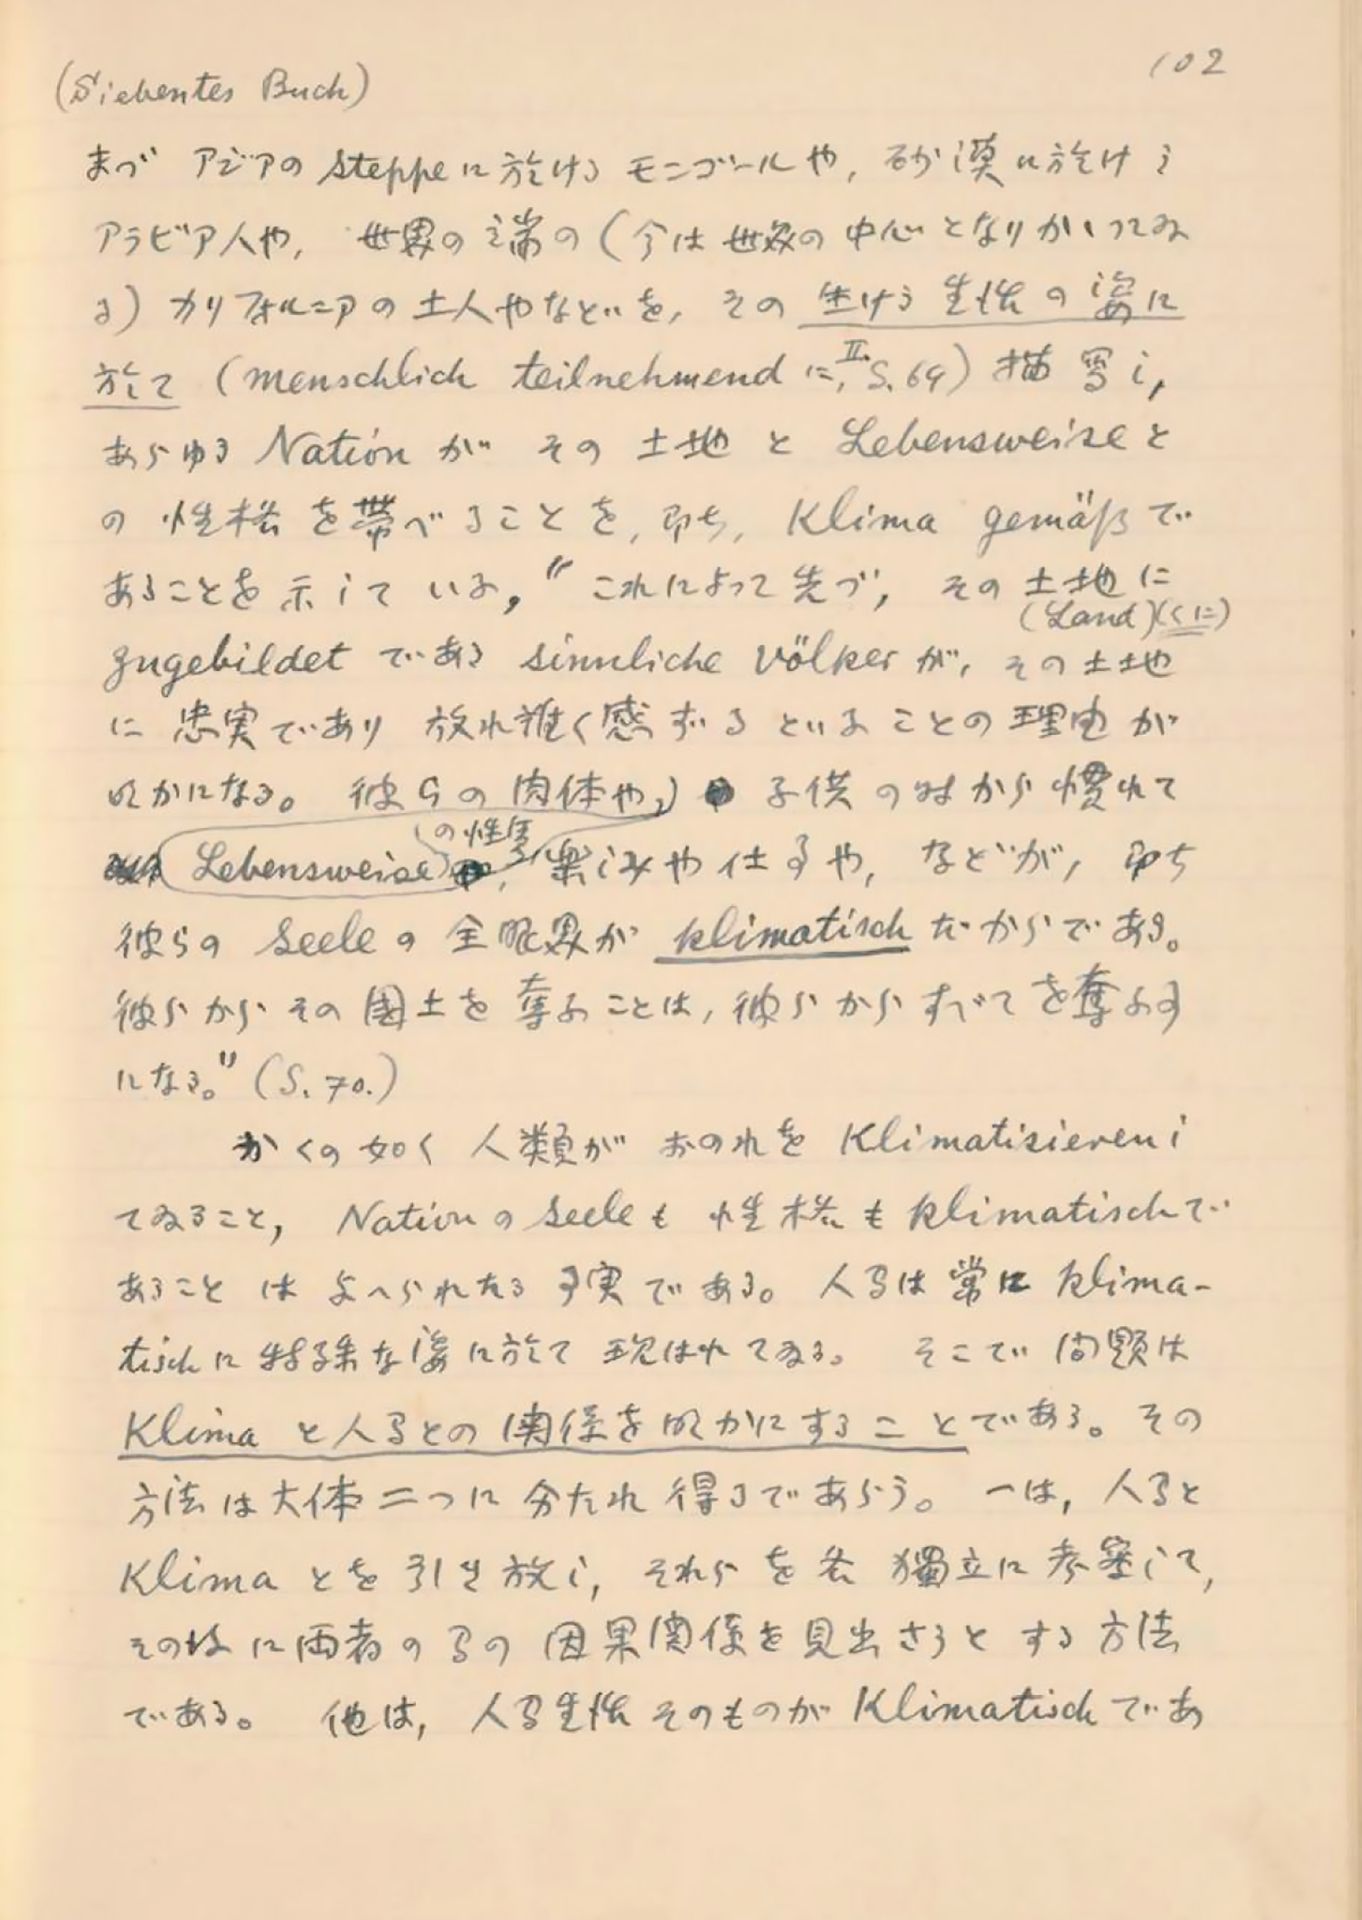 102
(Siebentes Buch)
まづ アジアの Steppe に於ける モンゴールや, 砂漠に於ける
アラビア人や, 世界の端の (今は世界の中心となりかかってゐ
る) カリフォルニアの土人やなどを, その 生ける生活の姿に
於て (menschlich teilnehmend に, II. S. 69) 描写し,
あらゆる Nation が その 土地 と Lebensweise と
の 性格 を帯べることを, 即ち, Klima gemäß で
あることを 示している。 " これによって先づ, その 土地に
(Land)(くに)
zugebildet である sinnliche Völker が, その土地
に 忠実であり 放れ難く感ずる といふ ことの 理由 が
明かになる。 彼らの 肉体や, 子供 の時から慣れて
Lebensweise の性質, 楽しみや仕事や, などが, 即ち
彼らの Seele の 全眼界が klimatisch だからである。
彼らから その 國土を 奪ふことは, 彼らから すべてを奪ふ事
になる。" (S. 70.)
かくの如く 人類が おのれを Klimatisieren し
てゐること, Nation の Seele も 性格も klimatisch で
あること は 与へられたる 事実である。 人間は常に klima-
tisch に 特殊な姿に於て 現はれてゐる。 そこで 問題は
Klima と人間との 関係を明かにすることである。 その
方法は大体 二つに 分たれ 得るであらう。 一は, 人間と
Klima とを 引き放し, それらを各 獨立に考察して,
その後に両者の間の 因果関係を見出さうと する方法
である。 他は, 人間生活そのものが Klimatisch であ